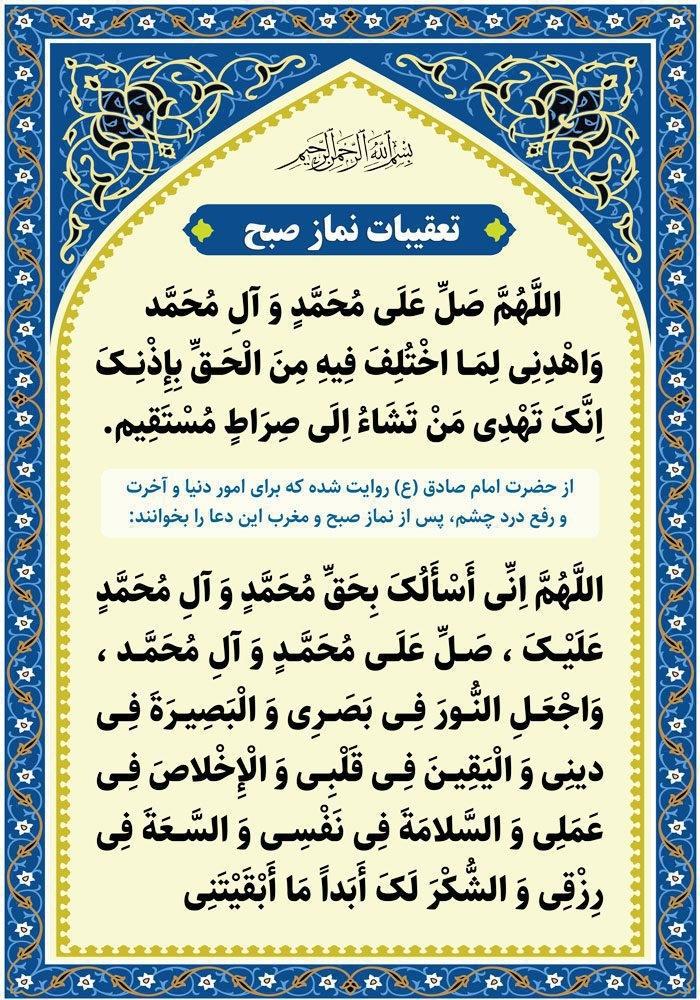 بسم الله الرحمن الرحیم
تعقیبات نماز صبح
اللَّهُمَّ صَلِّ عَلَی مُحَمَّدٍ وَ آلِ مُحَمَّد
وَاهْدِنِی لِمَا اخْتُلِفَ فِیهِ مِنَ الْحَقِّ بِإِذْنِکَ
اِنَّکَ تَهْدِی مَنْ تَشَاءُ اِلَی صِرَاطٍ مُسْتَقِیم.
از حضرت امام صادق (ع) روایت شده که برای امور دنیا و آخرت
و رفع درد چشم، پس از نماز صبح و مغرب این دعا را بخوانند:
اللَّهُمَّ اِنِّی أَسْأَلُکَ بِحَقِّ مُحَمَّدٍ وَ آلِ مُحَمَّدٍ
عَلَیْکَ ، صَلِّ عَلَی مُحَمَّدٍ وَ آلِ مُحَمَّد ،
وَاجْعَلِ النُّورَ فِی بَصَرِی وَ الْبَصِیرَةَ فِی
دینِی وَ الْیَقِینَ فِی قَلْبِی وَ الْإِخْلاصَ فِی
عَمَلِی وَ السَّلامَةَ فِی نَفْسِی وَ السَّعَةَ فِی
رِزْقِی وَ الشُّکْرَ لَکَ أَبَداً مَا أَبْقَیْتَنِی